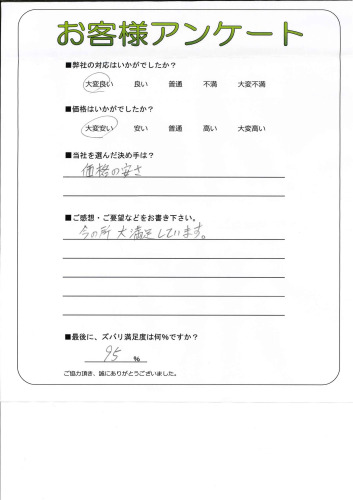 お客様アンケート
■弊社の対応はいかがでしたか？
大変良い 良い 普通 不満 大変不満
■価格はいかがでしたか？
大変安い 安い 普通 高い 大変高い
■当社を選んだ決め手は？
価格の安さ
■ご感想・ご要望などをお書き下さい。
今の所大満足しています。
■最後に、ズバリ満足度は何％ですか？
95 %
ご協力頂き、誠にありがとうございました。